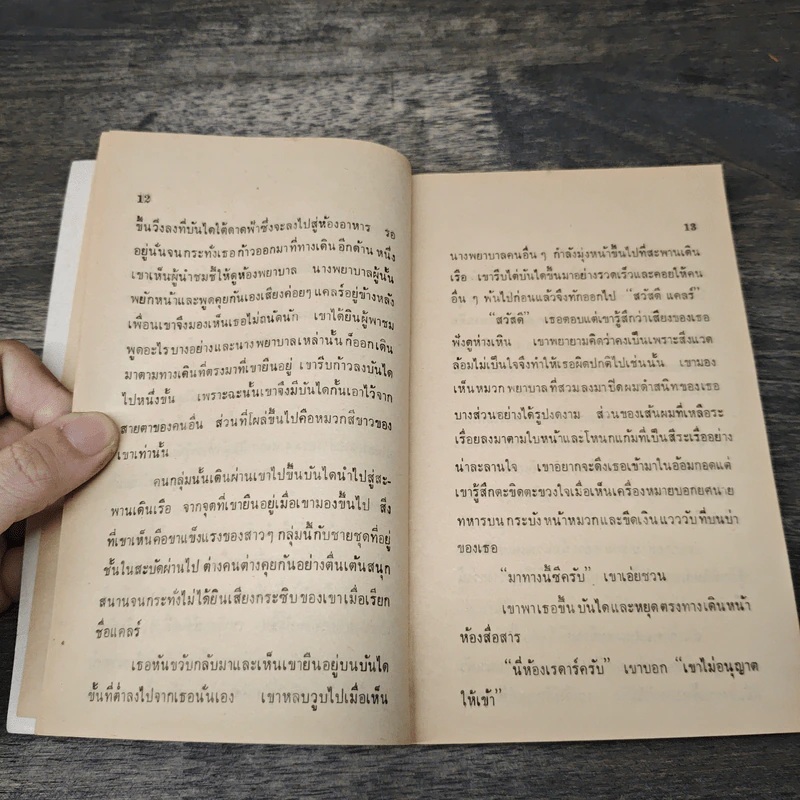 12
ขึ้นวิ่งลงที่บันไดใต้ดาดฟ้าซึ่งจะลงไปสู่ห้องอาหาร รอ
อยู่นั่นจนกระทั่งเธอก้าวออกมาที่ทางเดินอีกด้านหนึ่ง
เขาเห็นผู้นำชมชี้ให้ดูห้องพยาบาล นางพยาบาลผู้นั้น
พยักหน้าและพูดคุยกันเองเสียงค่อยๆ แคลร์อยู่ข้างหลัง
เพื่อนเขาจึงมองเห็นเธอไม่ถนัดนัก เขาได้ยินผู้พาชม
พูดอะไรบางอย่างและนางพยาบาลเหล่านั้นก็ออกเดิน
มาตามทางเดินที่ตรงมาที่เขายืนอยู่ เขารีบก้าวลงบันได
ไปหนึ่งขั้น เพราะฉะนั้นเขาจึงมีบันไดกั้นเอาไว้จาก
สายตาของคนอื่น ส่วนที่โผล่ขึ้นไปคือหมวกสีขาวของ
เขาเท่านั้น
คนกลุ่มนั้นเดินผ่านเขาไปขึ้นบันไดนำไปสู่สะ-
พานเดินเรือ จากจุดที่เขายืนอยู่เมื่อเขามองขึ้นไป สิ่ง
ที่เขาเห็นคือขาแข็งแรงของสาวๆ กลุ่มนี้กับชายชุดที่อยู่
ชั้นในสะบัดผ่านไป ต่างคนต่างคุยกันอย่างตื่นเต้นสนุก
สนานจนกระทั่งไม่ได้ยินเสียงกระซิบของเขาเมื่อเรียก
ชื่อแคลร์
เธอหันขวับกลับมาและเห็นเขายืนอยู่บนบันได
ขั้นที่ต่ำลงไปจากเธอนั่นเอง เขาหลบวูบไปเมื่อเห็น
13
นางพยาบาลคนอื่นๆ กำลังมุ่งหน้าขึ้นไปที่สะพานเดิน
เรือ เขารีบไต่บันไดขึ้นมาอย่างรวดเร็วและคอยให้คน
อื่นๆ พ้นไปก่อนแล้วจึงทักออกไป “สวัสดี แคลร์”
“สวัสดี” เธอตอบแต่เขารู้สึกว่าเสียงของเธอ
ฟังดูห่างเหิน เขาพยายามคิดว่าคงเป็นเพราะสิ่งแวด
ล้อมไม่เป็นใจจึงทำให้เธอผิดปกติไปเช่นนั้น เขามอง
เห็นหมวกพยาบาลที่สวมลงมาปิดผมดำสนิทของเธอ
บางส่วนอย่างได้รูปงดงาม ส่วนของเส้นผมที่เหลือระ
เรื่อยลงมาตามใบหน้าและโหนกแก้มที่เป็นสีระเรื่ออย่าง
น่าละลานใจ เขาอยากจะดึงเธอเข้ามาในอ้อมกอดแต่
เขารู้สึกตะขิดตะขวงใจเมื่อเห็นเครื่องหมายบอกยศนาย
ทหารบนกระบังหน้าหมวกและขีดเงินแวววับที่บนบ่า
ของเธอ
“มาทางนี้ซีครับ” เขาเอ่ยชวน
เขาพาเธอขึ้นบันไดและหยุดตรงทางเดินหน้า
ห้องสื่อสาร
“นี่ห้องเรดาร์ครับ” เขาบอก “เขาไม่อนุญาต
ให้เข้า”